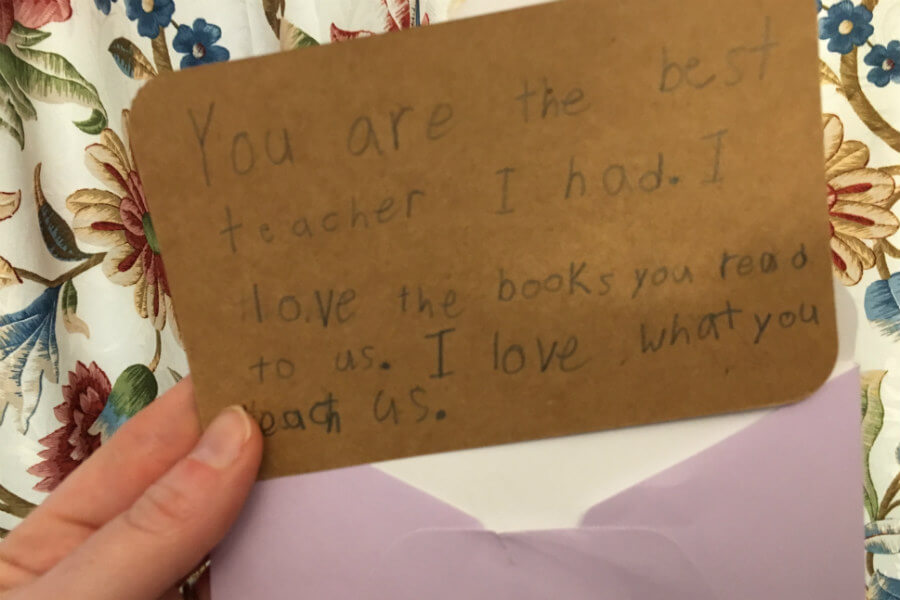 You are the best
teacher I had. I
love the books you read
to us. I love what you
teach us.